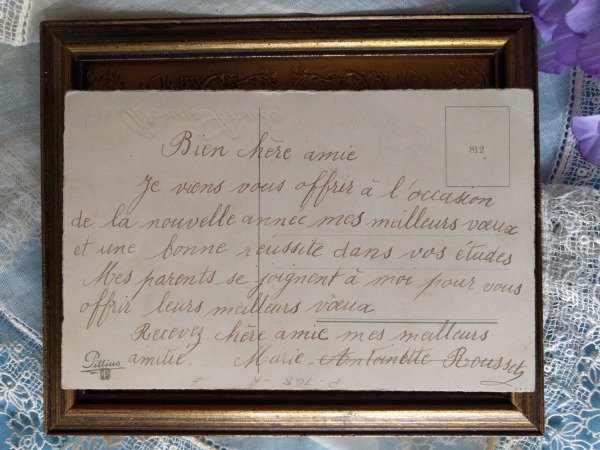 Bien chère amie
812
Je viens vous offrir à l'occasion
de la nouvelle année mes meilleurs vœux
et une bonne réussite dans vos études
Mes parents se joignent à moi pour vous
offrir leurs meilleurs vœux
Recevez chère amie mes meilleurs
amitié. Marie-Antoinette Rousset